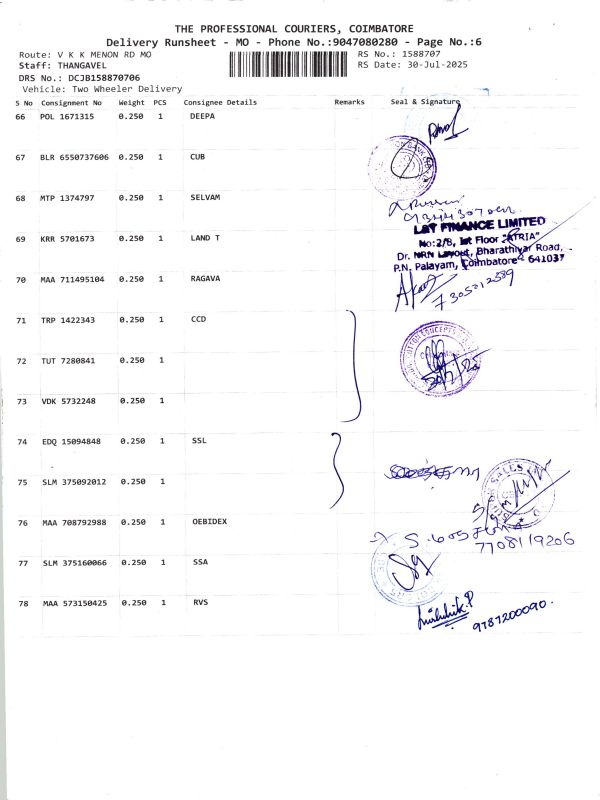 THE PROFESSIONAL COURIERS, COIMBATORE
Delivery Runsheet - MO - Phone No.:9047080280 - Page No.:6
Route: V K K MENON RD MO
RS No.: 1588707
Staff: THANGAVEL
RS Date: 30-Jul-2025
DRS No.: DCJB158870706
Vehicle: Two Wheeler Delivery
S No Consignment No Weight PCS Consignee Details Remarks Seal & Signature
66 POL 1671315 0.250 1 DEEPA
67 BLR 6550737606 0.250 1 CUB
68 MTP 1374797 0.250 1 SELVAM
69 KRR 5701673 0.250 1 LAND T
L&T FINANCE LIMITED
No:2/8, Ist Floor "ATRIA"
Dr. NRN Layout, Bharathiyar Road,
P.N. Palayam, Coimbatore - 641037
70 MAA 711495104 0.250 1 RAGAVA
7305012389
71 TRP 1422343 0.250 1 CCD
72 TUT 7280841 0.250 1
30/7/25
73 VDK 5732248 0.250 1
74 EDQ 15094848 0.250 1 SSL
75 SLM 375092012 0.250 1
76 MAA 708792988 0.250 1 OEBIDEX
7708119206
77 SLM 375160066 0.250 1 SSA
78 MAA 573150425 0.250 1 RVS
9787200090.